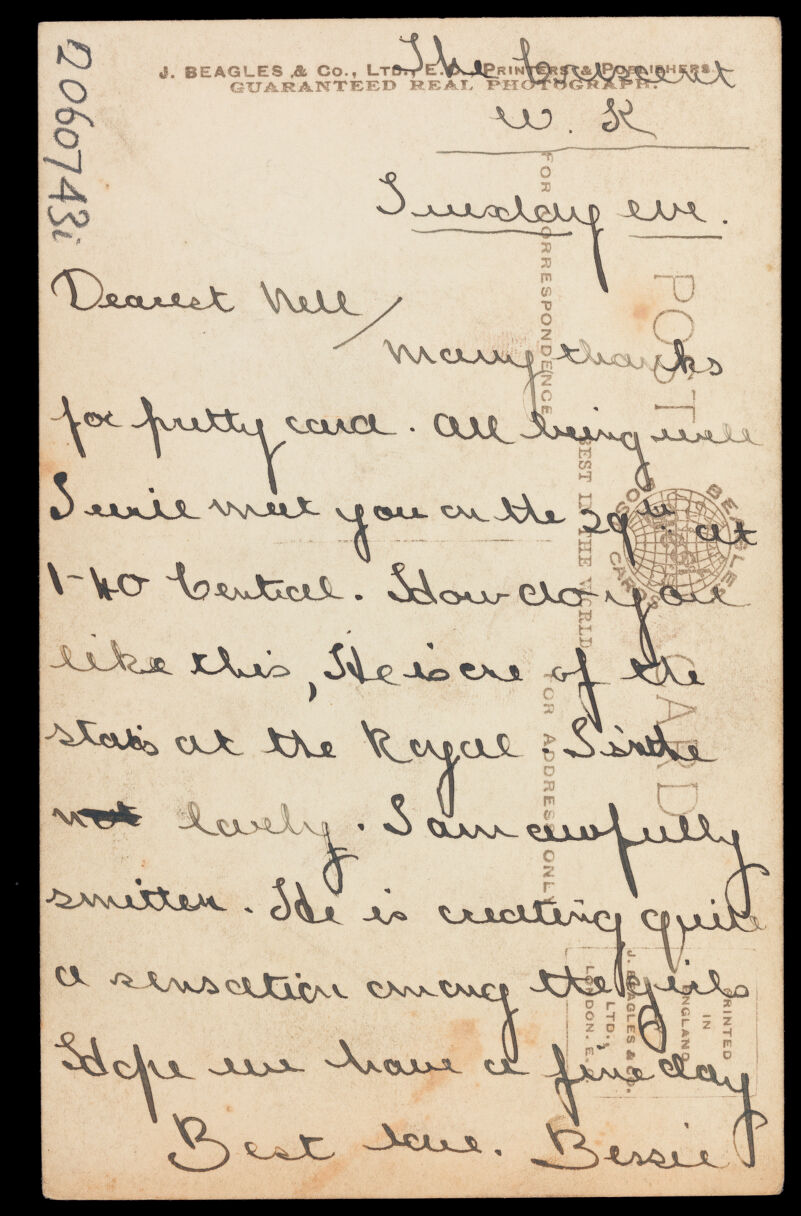 2060743i
J. BEAGLES & Co., LTD., E.C. PRINTERS & PUBLISHERS.
GUARANTEED REAL PHOTOGRAPH.
The Crescent
W. K
Sunday eve.
Dearest Nell
Many thanks
for pretty card. All being well
I will meet you on the 29th at
1-40 Central. How do you
like this, He is one of the
stars at the Royal. Isn't he
not lovely. I am awfully
smitten. He is creating quite
a sensation among the girls
Hope we have a fine day
Best love. Bessie
POST CARD
FOR CORRESPONDENCE
FOR ADDRESS ONLY
BEAGLES
POST CARDS
BEST IN THE WORLD
PRINTED
IN
ENGLAND
J. BEAGLES & CO.
LTD.,
LONDON. E.C.